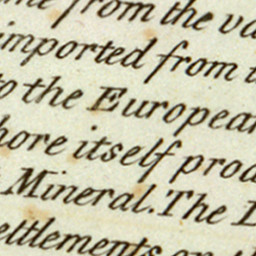 from the va
imported from
to the European
hore itself prod
Mineral. The
ettlements on